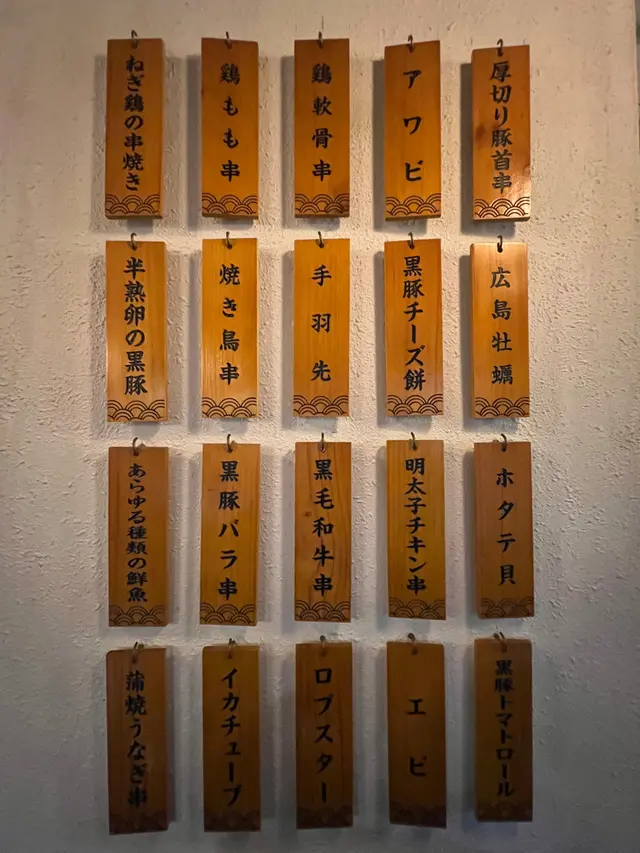 ねぎ鶏の串焼き
鶏もも串
鶏軟骨串
アワビ
厚切り豚首串
半熟卵の黒豚
焼き鳥串
手羽先
黒豚チーズ餅
広島牡蠣
あらゆる種類の鮮魚
黒豚バラ串
黒毛和牛串
明太子チキン串
ホタテ貝
蒲焼うなぎ串
イカチューブ
ロブスター
エビ
黒豚トマトロール